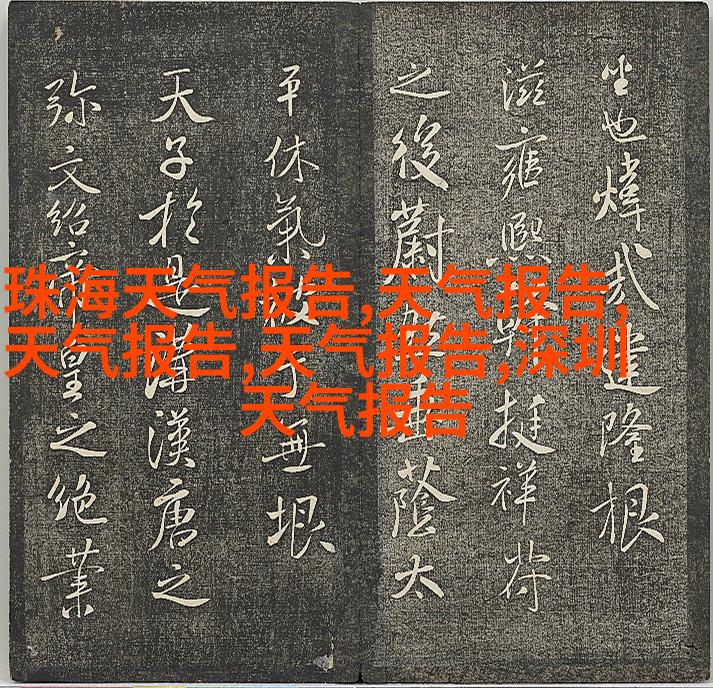 珠海天气报告,天气报告,
天气报告,天气报告,深圳
天气报告
也煒哉建隆根
滋雍熙挺祥符
之後蔚垂蔭太
平休氣無垠
天子於是講漢唐之
弥文紹皇之絶業